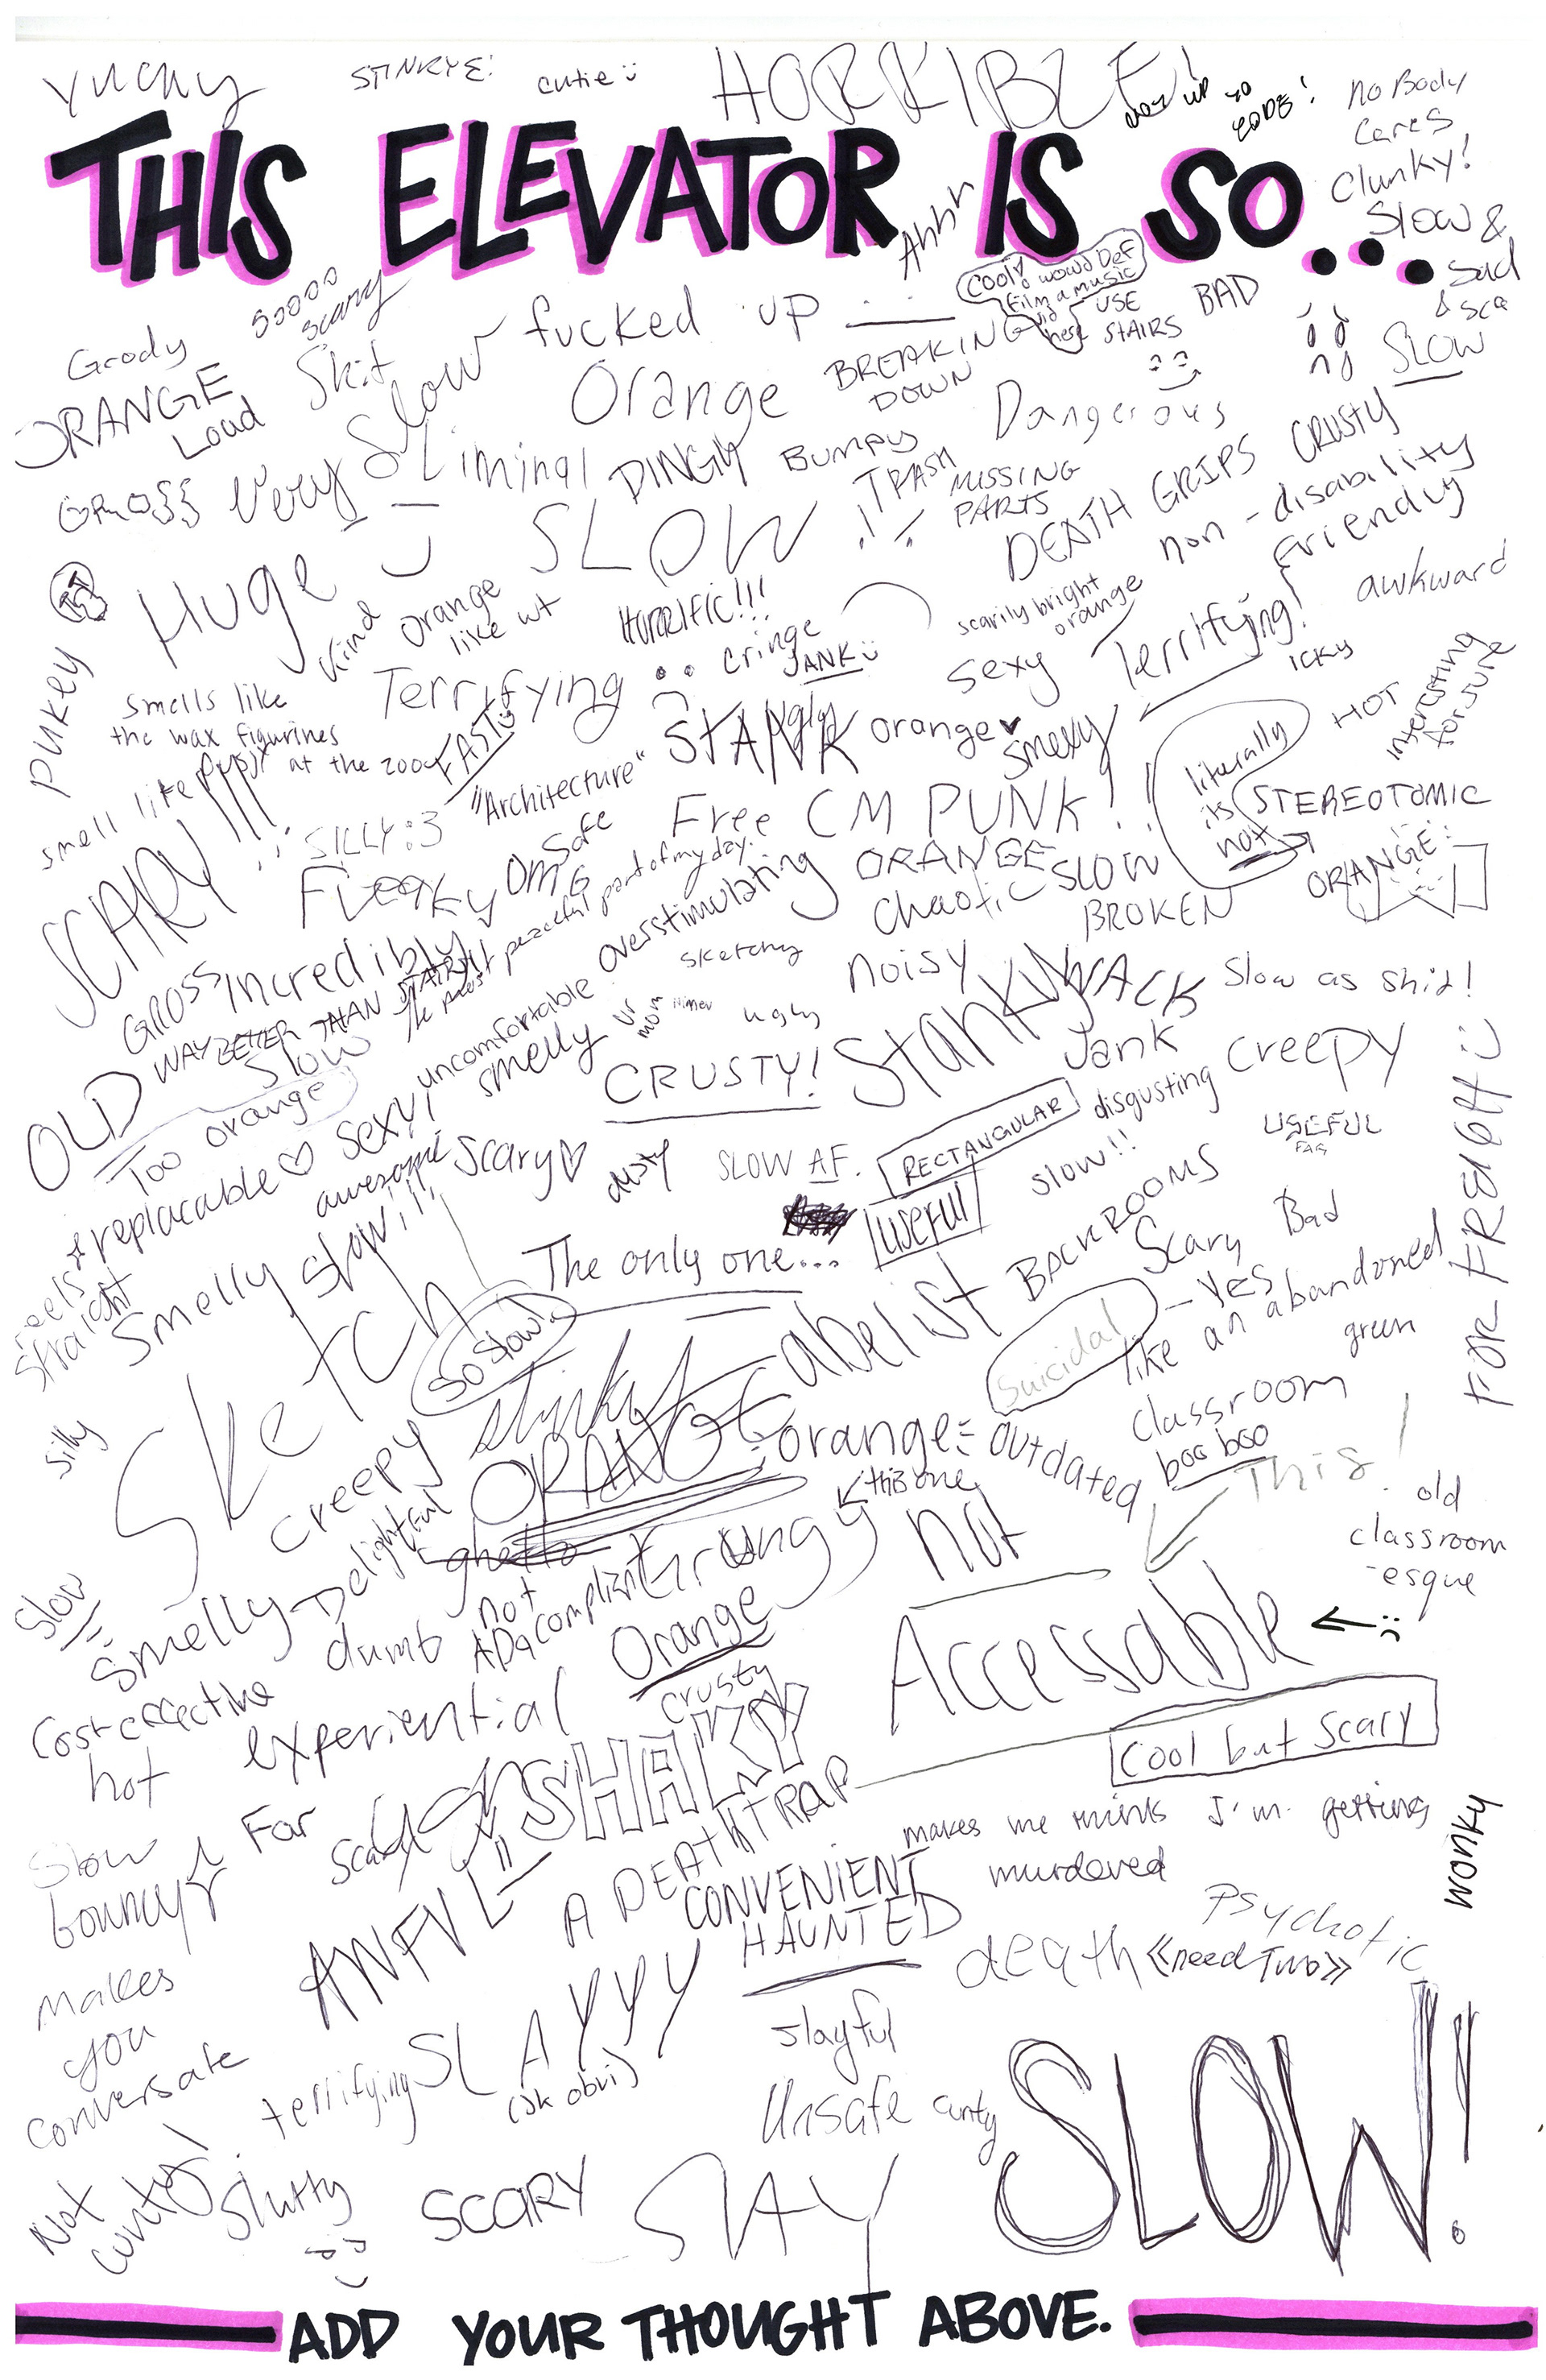 YUCKY
STINKYE!
cutie :)
HORRIBLE!
no Body
cares
THIS ELEVATOR IS SO...
clunky!
Slow &
Sad
& sca
Ahhh
Cool! would Def
film a music
vid
here
USE
STAIRS
BAD
Grody
soooo
scary
fucked up
SLOW
ORANGE
Loud
Slow
Orange
BREAKING
DOWN
Dangerous
CRUSTY
GROSS
Very
Liminal
DINGY
Bumpy
TRASH
MISSING
PARTS
DEATH GRIPS
non-disability
friendly
SLOW
Huge
Kind
orange
like wt
HORRIFIC!!!
scarily bright
orange
awkward
PUKEY
Terrifying
cringe
JANK :)
sexy
Terrifying!
ICKY
interesting
for sure
HOT
smells like
the wax figurines
at the 2004
FAST
STANK
ugly
orange ♥
smexy
literally
its
not
STEREOTOMIC
smell like
"Architecture"
SCARY!!!
SILLY :3
Safe
Free
CM PUNK!!
OMG
ORANGE
SLOW
ORANGE
chaotic
BROKEN
The most peaceful part of my day.
overstimulating
GROSS
Incredibly
WAY BETTER THAN STAIRS!
sketchy
noisy
STANKY
WACK
Slow as shit!
Slow
uncomfortable
smelly
ur
mom
ugly
Jank
creepy
OLD
Too orange
CRUSTY!
RECTANGULAR
disgusting
USEFUL
replacable ♡
sexy!
awesome
Scary ♡
dusty
SLOW AF.
slow!!
useful
FOR FR8ght :)
feels
straight
Smelly
slow!!!
The only one...
BACKROOMS
Scary
Bad
Sketch
So slow!
abelist
Suicidal
- YES
like an abandoned
classroom
green
silly
creepy
stinky
ORANGE
orange =
outdated
boo boo
This!
Delightful
ghetto
Grungy
this one
not
old
classroom
-esque
slow
Smelly
dumb
not
ADA compliant
Orange
Accessable
Cost effective
experiential
crusty
Cool but Scary
hot
SHAKY
Far
Slow
bouncy
A DEATH TRAP
CONVENIENT
HAUNTED
makes me think I'm getting
murdered
wonky
AWFUL
Psychotic
death
«need Two»
makes
you
conversate
SLAYYY
(jk obvi)
slayful
terrifying
Unsafe
cunty
SLOW!
Not
cunty!
Slutty
SCARY
SLAY
ADD YOUR THOUGHT ABOVE.